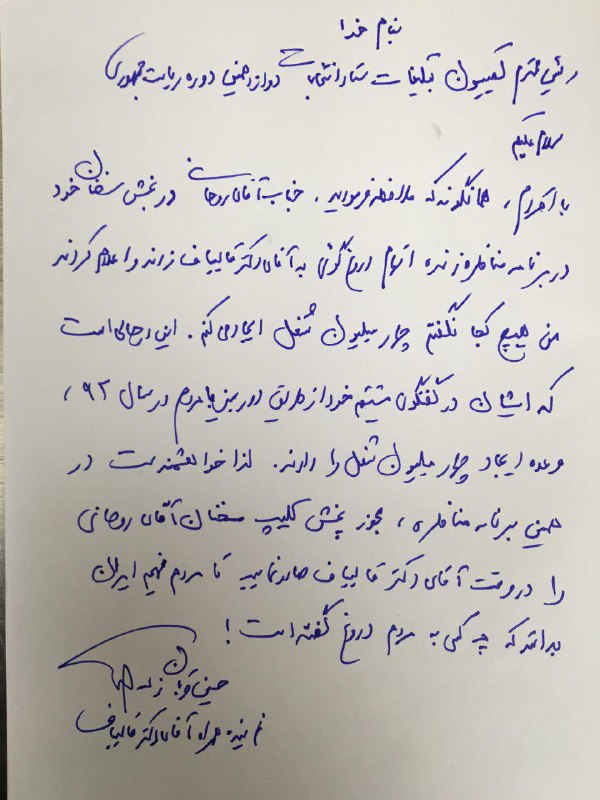 بنام خدا
رئیس محترم کمیسیون تبلیغات ستاد انتخابات دوازدهمین دوره ریاست جمهوری
سلام علیکم
با احترام، همانگونه که ملاحظه فرمودید، جناب آقای روحانی در بخش سخنان خود
در برنامه مناظره زنده اتهام دروغ گوئی به آقای دکتر قالیباف زدند و اعلام کردند
من هیچ کجا نگفتم چهار میلیون شغل ایجاد می کنم. این در حالی است
که ایشان در گفتگوی مستقیم خود از طریق دوربین با مردم در سال ۹۲،
وعده ایجاد چهار میلیون شغل را دادند. لذا خواهشمندست در
همین برنامه مناظره، مجوز پخش کلیپ سخنان آقای روحانی
را در وقت آقای دکتر قالیباف صادر نمایید تا مردم فهیم ایران
بدانند که چه کسی به مردم دروغ گفته است!
حسین قربان زاده
نماینده همراه آقای دکتر قالیباف